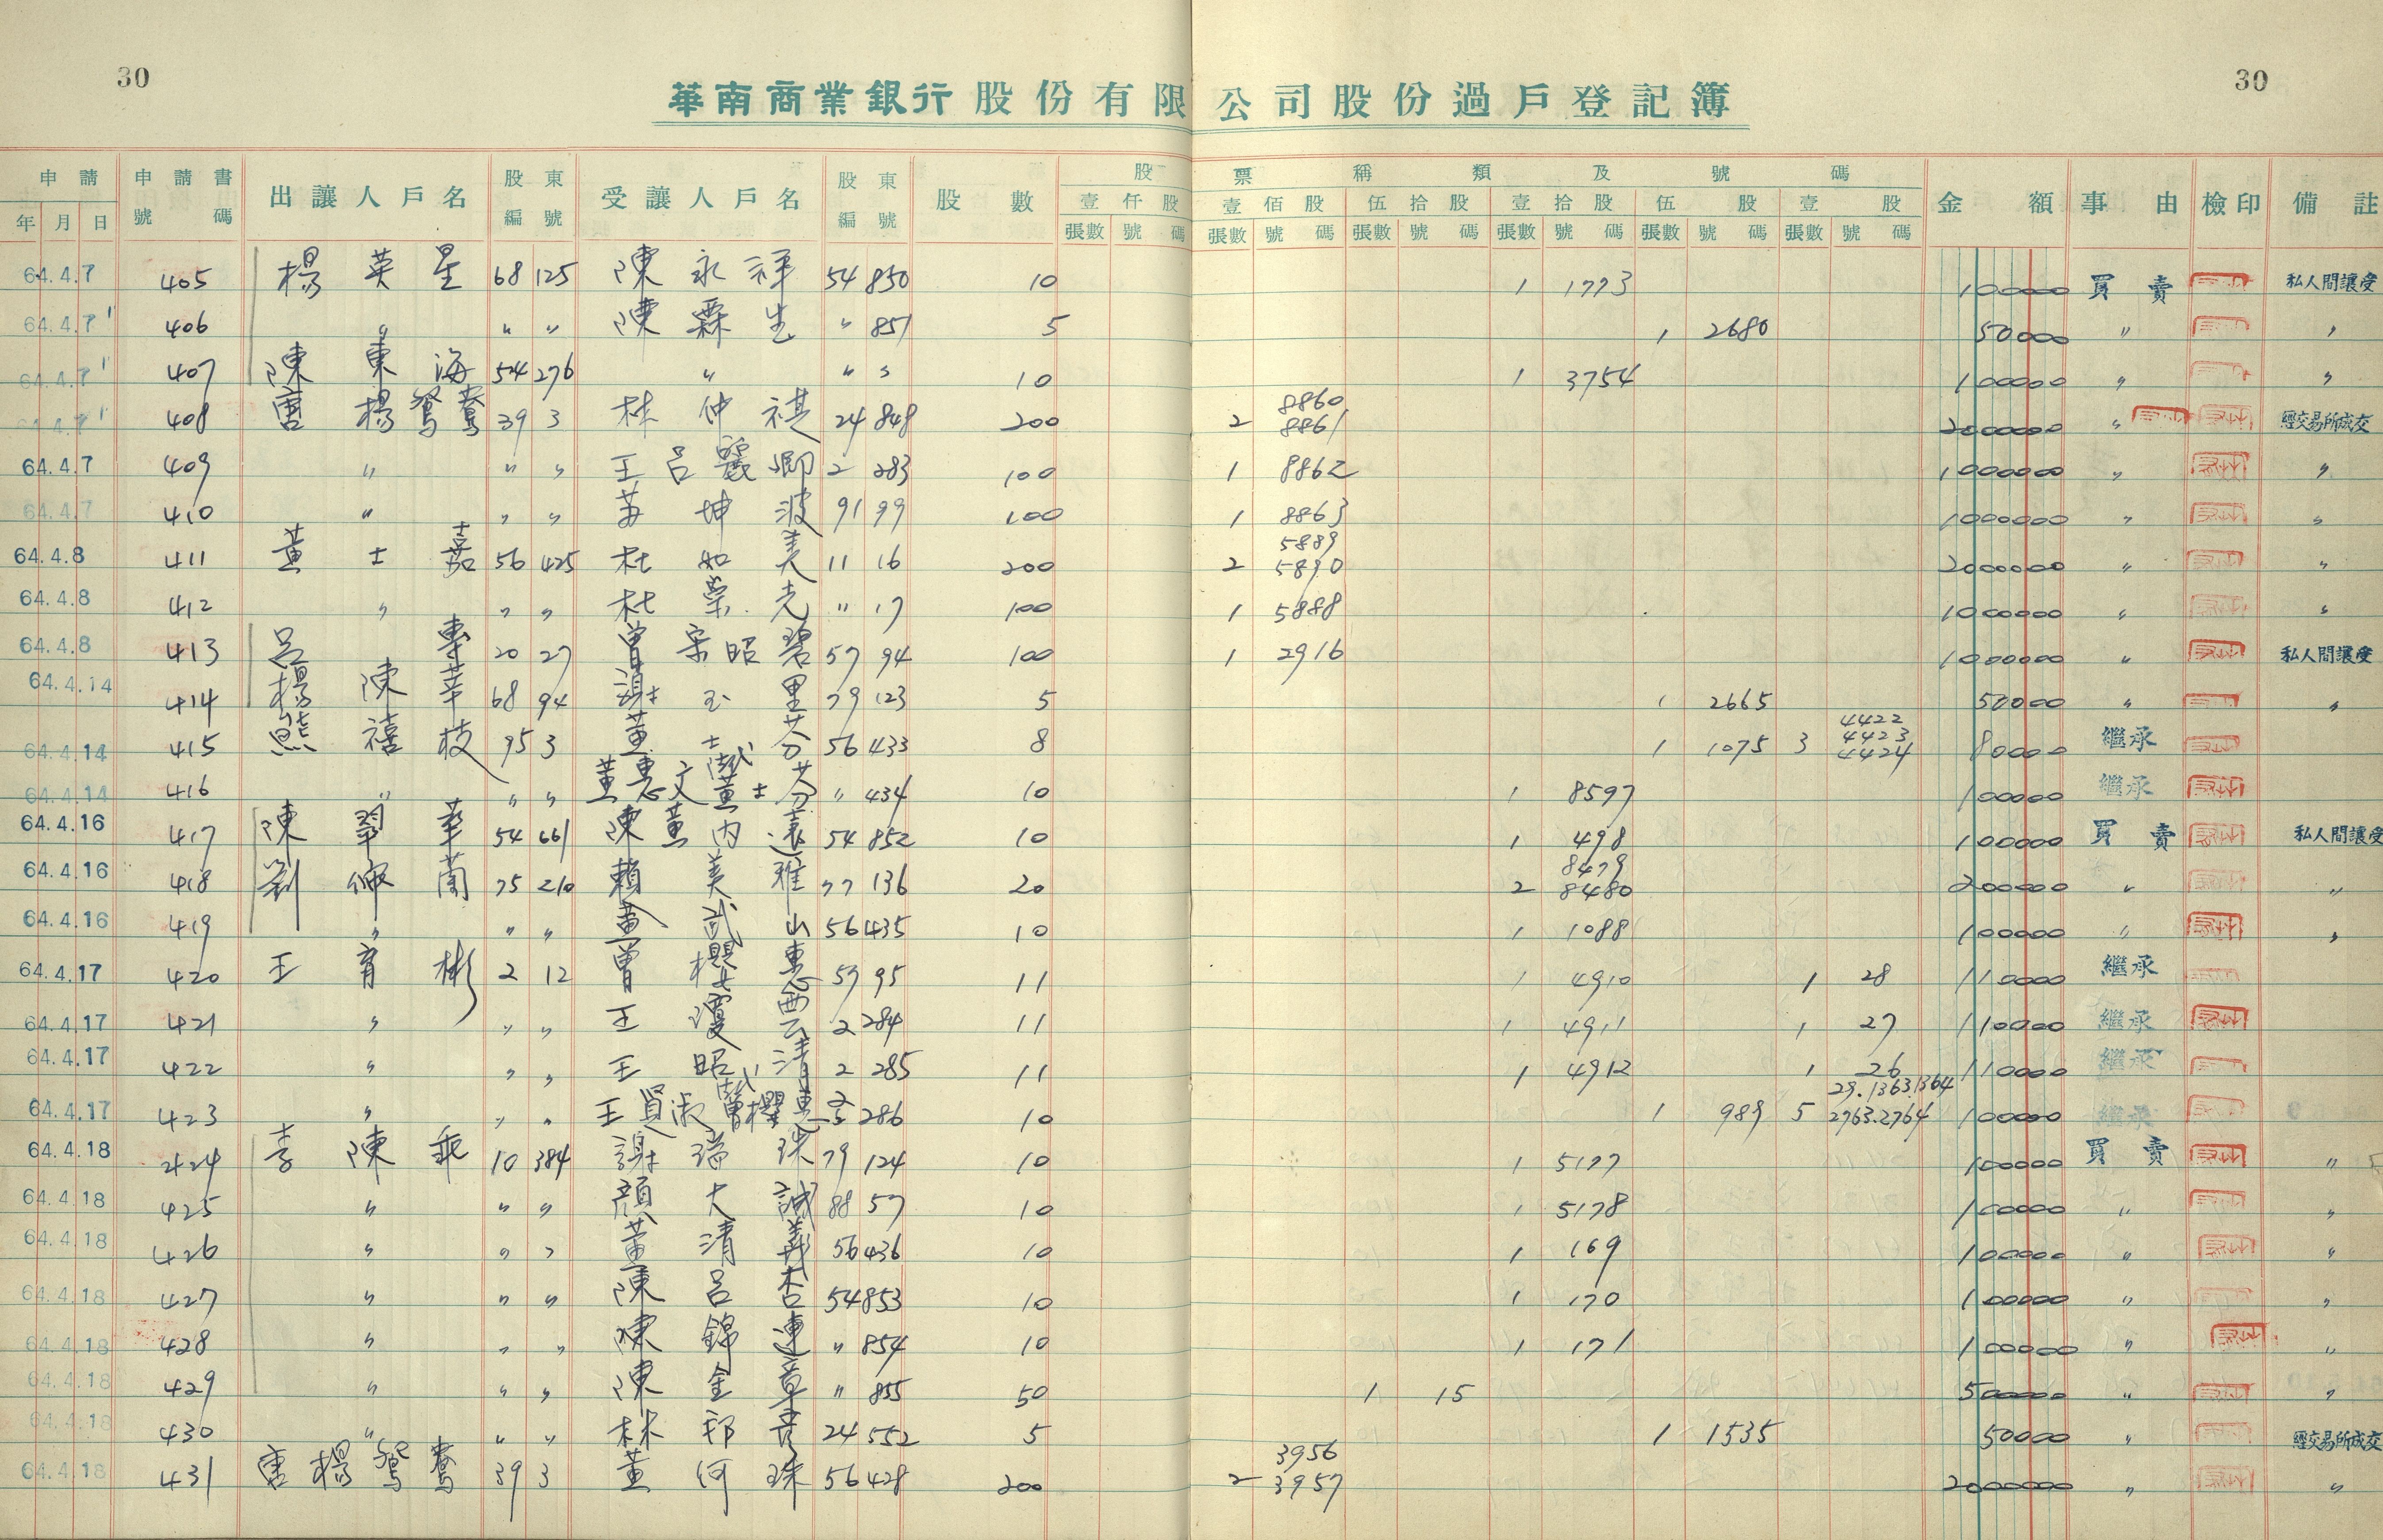 30 30
華南商業銀行股份有限公司股份過戶登記簿
申請 年 月 日 申請書號碼 出讓人戶名 股東編號 受讓人戶名 股東編號 股數 股票稱類及號碼 金額 事由 檢印 備註
壹仟股 壹佰股 伍拾股 壹拾股 伍股 壹股
張數 號碼 張數 號碼 張數 號碼 張數 號碼 張數 號碼 張數 號碼
64.4.7 405 楊英星 68 125 陳永祥 54 850 10 1 1773 100000 買賣 私人間讓受
64.4.7 406 〃 〃 〃 陳霖生 〃 851 5 1 2680 50000 〃 〃
64.4.7 407 陳東海 54 276 〃 〃 〃 10 1 3754 100000 〃 〃
64.4.7 408 唐楊鴛鴦 39 3 林仲祺 24 848 200 2 8860 8861 2000000 〃 經交易所成交
64.4.7 409 〃 〃 〃 王呂麗卿 2 283 100 1 8862 1000000 〃 〃
64.4.7 410 〃 〃 〃 苏坤波 91 99 100 1 8863 1000000 〃 〃
64.4.8 411 黃士嘉 56 425 杜如美 11 16 200 2 5889 5890 2000000 〃 〃
64.4.8 412 〃 〃 〃 杜榮光 〃 17 100 1 5888 1000000 〃 〃
64.4.8 413 呂專 20 27 曾宋昭碧 57 94 100 1 2916 1000000 〃 私人間讓受
64.4.14 414 楊陳華 68 94 謝玉里 79 123 5 1 2665 50000 〃 〃
64.4.14 415 熊禧枝 95 3 董士芬 56 433 8 1 1075 3 4422 4423 4424 80000 繼承
64.4.14 416 〃 〃 〃 董惠文 董士芬 〃 434 10 1 8597 100000 繼承
64.4.16 417 陳翠華 54 661 陳黃內遠 54 852 10 1 498 100000 買賣 私人間讓受
64.4.16 418 劉蘭 75 210 賴美雅 77 136 20 2 8479 8480 200000 〃 〃
64.4.16 419 〃 〃 〃 黃武山 56 435 10 1 1088 100000 〃 〃
64.4.17 420 王育彬 2 12 曾櫻惠 57 95 11 1 4910 1 28 110000 繼承
64.4.17 421 〃 〃 〃 王瓊雲 2 284 11 1 4911 1 27 110000 繼承
64.4.17 422 〃 〃 〃 王昭清 2 285 11 1 4912 1 26 110000 繼承
64.4.17 423 〃 〃 〃 王賢淑 曾櫻惠 2 286 10 1 989 5 29.1363.1364 2763.2764 100000 繼承
64.4.18 424 李陳乖 10 384 謝瑞珠 79 124 10 1 5177 100000 買賣 〃
64.4.18 425 〃 〃 〃 顏大誠 88 57 10 1 5178 100000 〃 〃
64.4.18 426 〃 〃 〃 黃清義 56 436 10 1 169 100000 〃 〃
64.4.18 427 〃 〃 〃 陳呂杏 54 853 10 1 170 100000 〃 〃
64.4.18 428 〃 〃 〃 陳錦連 〃 854 10 1 171 100000 〃 〃
64.4.18 429 〃 〃 〃 陳金章 〃 855 50 1 15 500000 〃 〃
64.4.18 430 〃 〃 〃 林邦彥 24 552 5 1 1535 50000 〃 經交易所成交
64.4.18 431 唐楊鴛鴦 39 3 董何珠 56 428 200 2 3956 3957 2000000 〃 〃